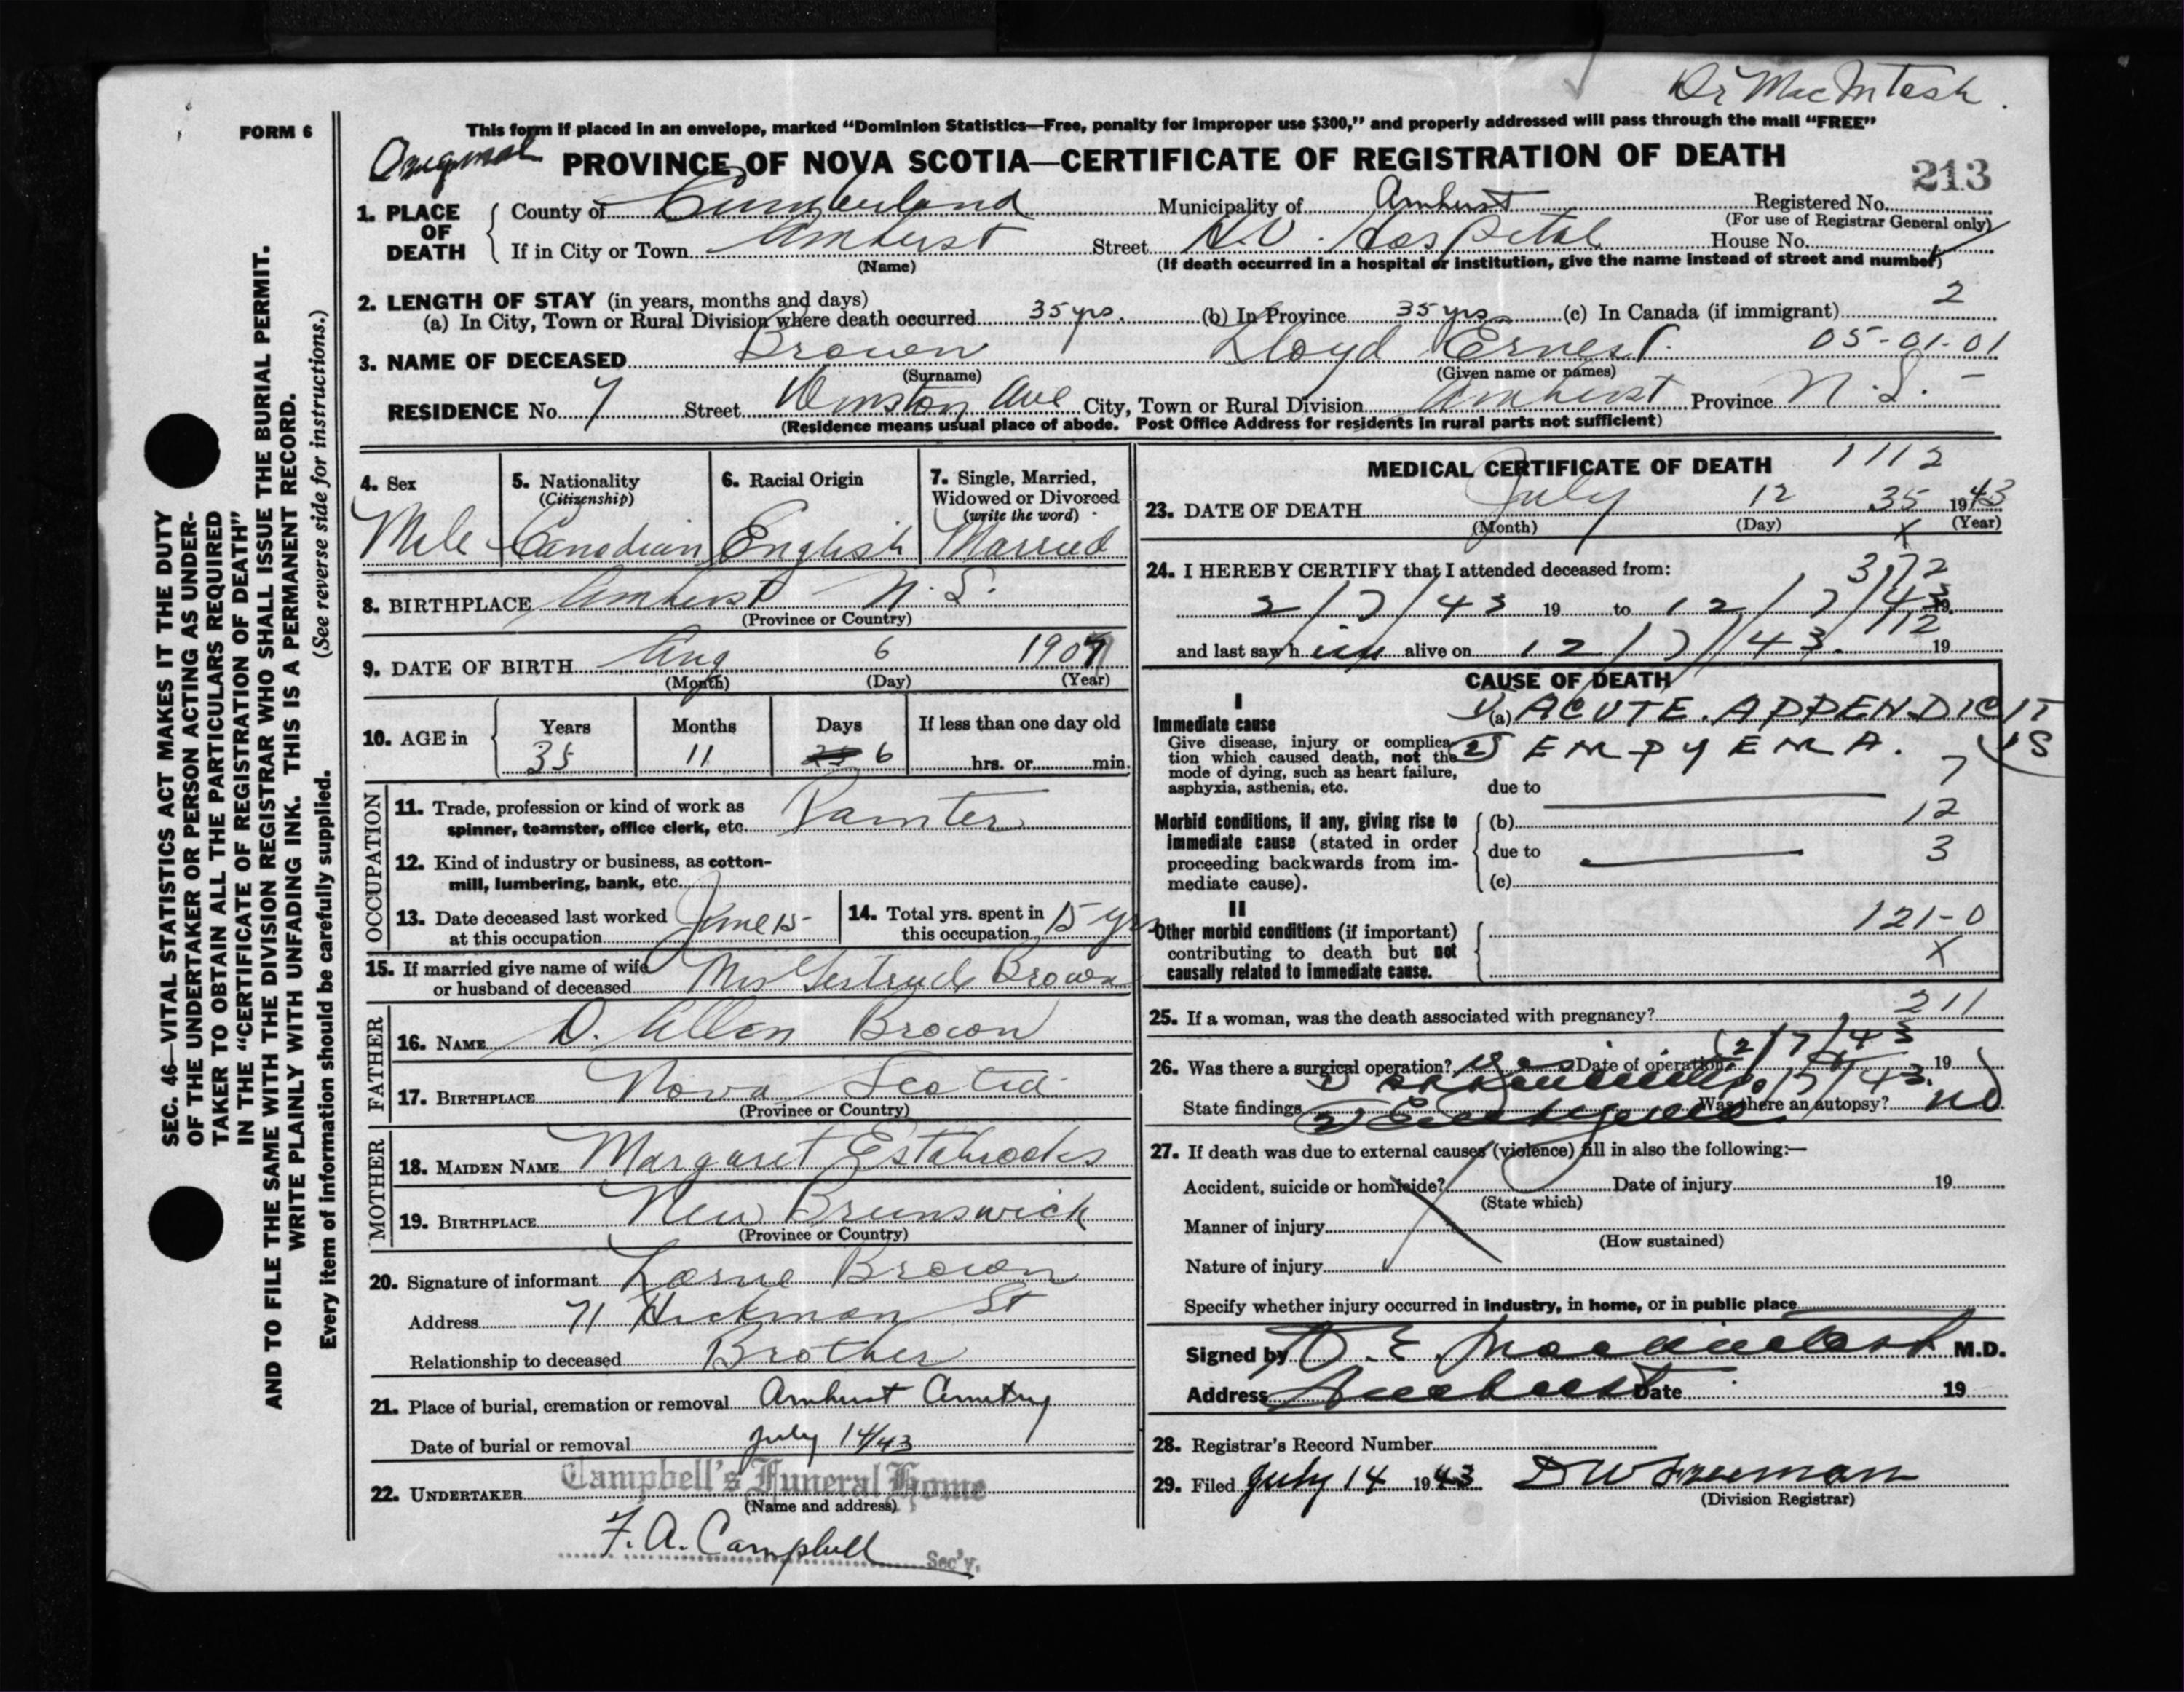 Dr MacIntosh.
FORM 6
This form if placed in an envelope, marked “Dominion Statistics—Free, penalty for improper use $300,” and properly addressed will pass through the mail “FREE”
Original PROVINCE OF NOVA SCOTIA—CERTIFICATE OF REGISTRATION OF DEATH
213
1. PLACE OF DEATH
County of Cumberland Municipality of Amherst Registered No.
(For use of Registrar General only)
If in City or Town Amherst Street H.V. Hospital House No.
(Name) (If death occurred in a hospital or institution, give the name instead of street and number)
2. LENGTH OF STAY (in years, months and days) 2
(a) In City, Town or Rural Division where death occurred 35 yrs. (b) In Province 35 yrs (c) In Canada (if immigrant)
3. NAME OF DECEASED Brown Lloyd Ernest. 05-01-01
(Surname) (Given name or names)
RESIDENCE No. 7 Street Winston Ave City, Town or Rural Division Amherst Province N.S. -
(Residence means usual place of abode. Post Office Address for residents in rural parts not sufficient)
4. Sex 5. Nationality (Citizenship) 6. Racial Origin 7. Single, Married, Widowed or Divorced (write the word)
Male Canadian English Married
8. BIRTHPLACE Amherst N.S.
(Province or Country)
9. DATE OF BIRTH Aug 6 1907
(Month) (Day) (Year)
10. AGE in Years Months Days If less than one day old
35 11 6 hrs. or min.
OCCUPATION
11. Trade, profession or kind of work as
spinner, teamster, office clerk, etc. Painter
12. Kind of industry or business, as cotton-
mill, lumbering, bank, etc.
13. Date deceased last worked at this occupation June 15
14. Total yrs. spent in this occupation 15 yrs
15. If married give name of wife
or husband of deceased Mrs Gertrude Brown
FATHER
16. NAME D. Allen Brown
17. BIRTHPLACE Nova Scotia
(Province or Country)
MOTHER
18. MAIDEN NAME Margaret Estabrooks
19. BIRTHPLACE New Brunswick
(Province or Country)
20. Signature of informant Lorne Brown
Address 71 Hickman St
Relationship to deceased Brother
21. Place of burial, cremation or removal Amherst Cemetry
Date of burial or removal July 14/43
22. UNDERTAKER Campbell's Funeral Home
(Name and address)
F. A. Campbell Sec'y.
MEDICAL CERTIFICATE OF DEATH 1112
23. DATE OF DEATH July 12 35 1943
(Month) (Day) X (Year)
24. I HEREBY CERTIFY that I attended deceased from: 372
2/7/43 19 to 12/7/43 19
112
and last saw him alive on 12/7/43. 19
CAUSE OF DEATH
I
Immediate cause
Give disease, injury or complica-
tion which caused death, not the
mode of dying, such as heart failure,
asphyxia, asthenia, etc.
1) (a) ACUTE. APPENDICITIS
2) EMPYEMA.
7
due to
Morbid conditions, if any, giving rise to
immediate cause (stated in order
proceeding backwards from im-
mediate cause).
(b) 12
due to 3
(c)
II
Other morbid conditions (if important)
contributing to death but not
causally related to immediate cause.
121-0
X
25. If a woman, was the death associated with pregnancy? 211
26. Was there a surgical operation? Yes Date of operation 2/7/43 19
State findings Was there an autopsy? no
27. If death was due to external causes (violence) fill in also the following:—
Accident, suicide or homicide? Date of injury 19
(State which)
Manner of injury
(How sustained)
Nature of injury
Specify whether injury occurred in industry, in home, or in public place
Signed by D. E. Macintosh M.D.
Address Amherst Date 19
28. Registrar's Record Number
29. Filed July 14 1943 D W Freeman
(Division Registrar)
SEC. 46—VITAL STATISTICS ACT MAKES IT THE DUTY
OF THE UNDERTAKER OR PERSON ACTING AS UNDER-
TAKER TO OBTAIN ALL THE PARTICULARS REQUIRED
IN THE “CERTIFICATE OF REGISTRATION OF DEATH”
AND TO FILE THE SAME WITH THE DIVISION REGISTRAR WHO SHALL ISSUE THE BURIAL PERMIT.
WRITE PLAINLY WITH UNFADING INK. THIS IS A PERMANENT RECORD.
Every item of information should be carefully supplied. (See reverse side for instructions.)